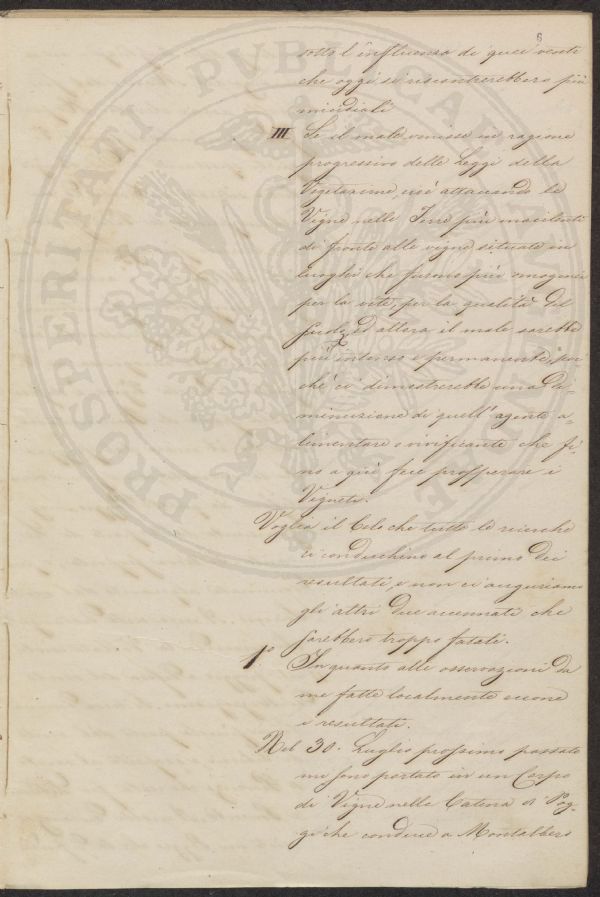 6
sotto l'influenza di quei venti
che oggi si riscontrerebbero più
micidiali
III Se il male venisse in ragione
progressiva delle Leggi della
Vegetazione, cioè attaccando le
Vigne nelle Terre più macilenti
di fronte alle vigne situate in
luoghi che furono più omogenei
per la vite, per la qualità del
suolo, ed allora il male sarebbe
più intenso e permanente, per
chè ci dimostrerebbe una di=
minuzione di quell'agente a=
limentare e vivificante che fi=
no a quì fece prosperare i
Vigneti.
Voglia il Cielo che tutte le ricerche
ci conduchino al primo dei
resultati, e non ci auguriamo
gli altri due accennati che
sarebbero troppo fatali.
1º In quanto alle osservazioni da
me fatte localmente eccone
i resultati.
Nel 30. Luglio prossimo passato
mi sono portato in un Corpo
di Vigne nella Catena di Pog=
gi che conduce a Montalbero
PROSPERITATI PVBLICAE AVGENDAE